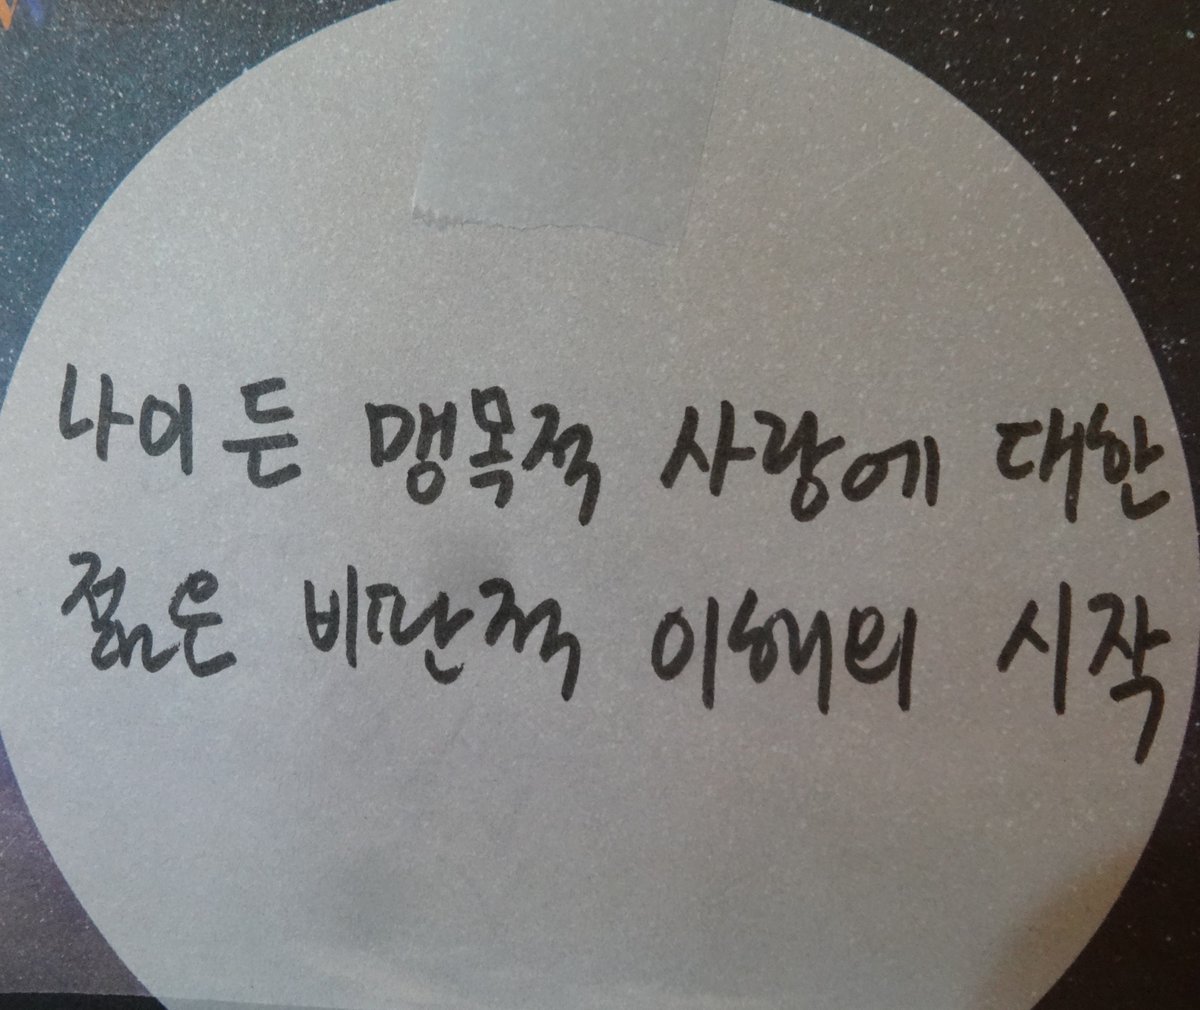 나이 든 맹목적 사랑에 대한
젊은 비판적 이해의 시작